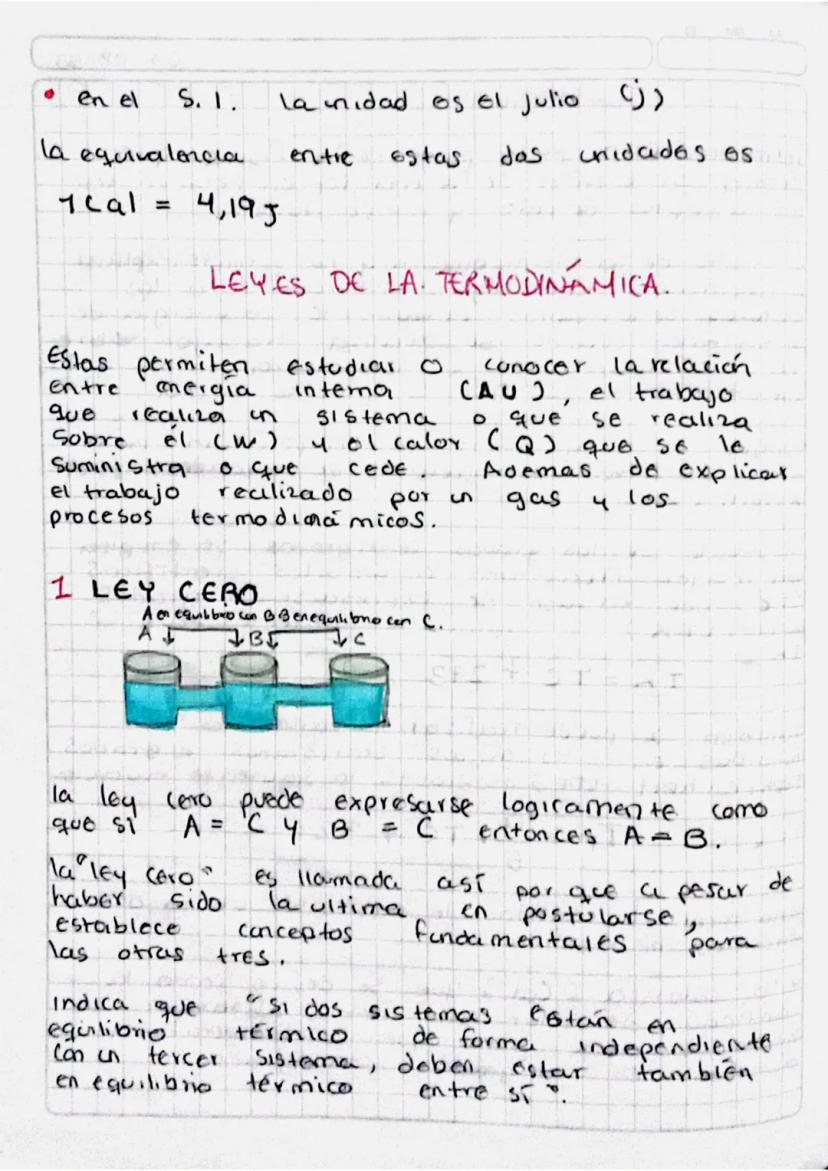 • en el S.I. la unidad es el julio (j)
la equivalencia entre estas dos unidades es
1 cal = 4,19 J
LEYES DE LA. TERMODINÁMICA.
Estas permiten estudiar o conocer la relación
entre energía interna (ΔU), el trabajo
que realiza un sistema o que se realiza
sobre él (W) y el calor (Q) que se le
suministra o que cede. Ademas de explicar
el trabajo realizado por un gas y los
procesos termodinámicos.
1 LEY CERO
A en equilibrio con B B en equilibrio con C.
A B C
la ley cero puede expresarse logicamente como
que si A = C y B = C entonces A = B.
la "ley cero" es llamada así por que a pesar de
haber sido la ultima en postularse,
establece conceptos fundamentales para
las otras tres.
indica que "si dos sistemas están en
equilibrio térmico de forma independiente
con un tercer sistema, deben estar también
en equilibrio térmico entre sí".